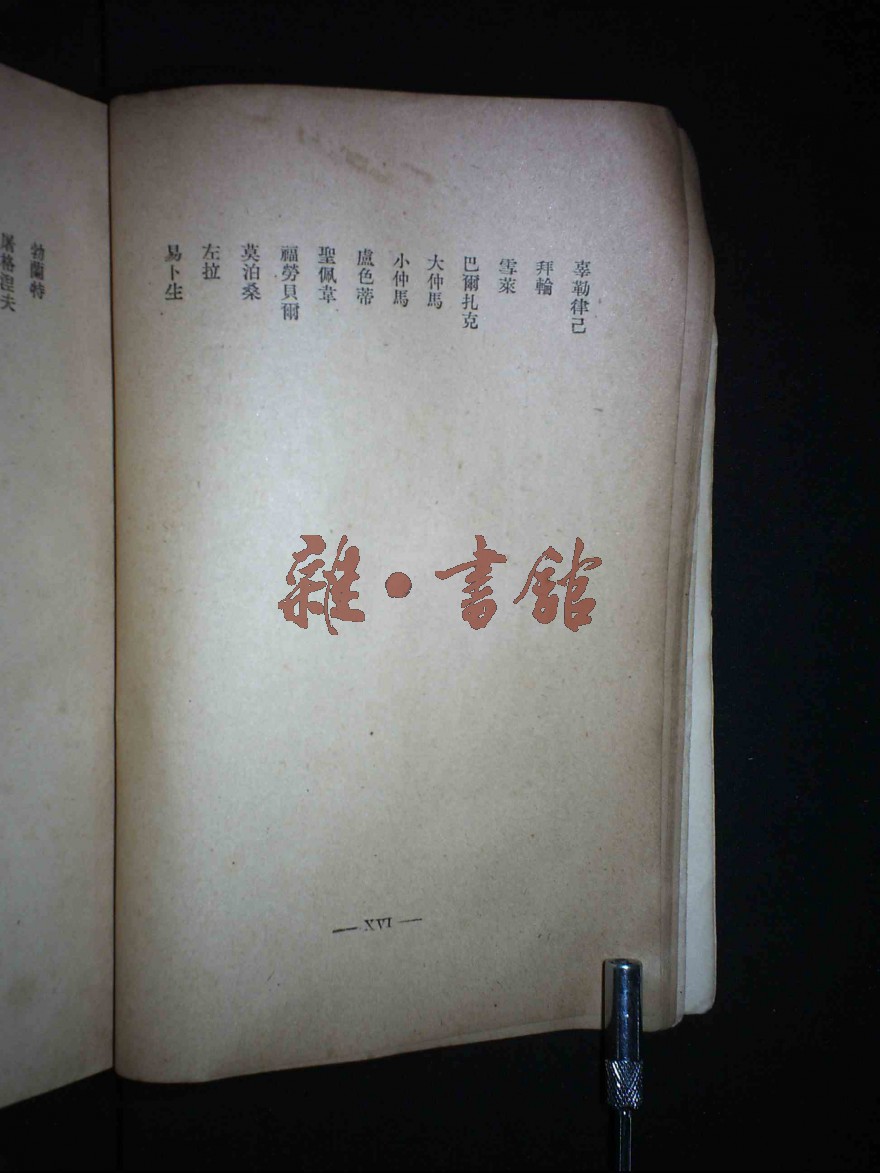 辜勒律己
拜輪
雪萊
巴爾扎克
大仲馬
小仲馬
盧色蒂
聖佩韋
福勞貝爾
莫泊桑
左拉
易卜生
— XVI —
勃蘭特
屠格涅夫
雜·書館